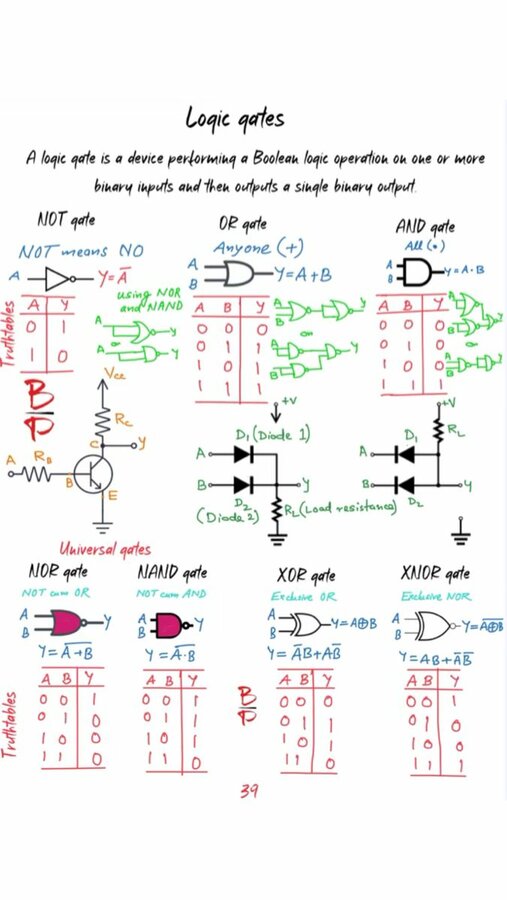 Logic gates
A logic gate is a device performing a Boolean logic operation on one or more
binary inputs and then outputs a single binary output.
NOT gate
NOT means NO
A
Y=A̅
Truthtables
A Y
0 1
1 0
using NOR
and NAND
A
Y
or
A
Y
OR gate
Anyone (+)
A
B
Y=A+B
A B Y
0 0 0
0 1 1
1 0 1
1 1 1
A
B
Y
or
A
B
Y
AND gate
All (•)
A
B
Y=A·B
A B Y
0 0 0
0 1 0
1 0 0
1 1 1
A
B
Y
or
A
B
Y
B
P
Vcc
RC
C
Y
A
RB
B
E
+V
D1 (Diode 1)
A
B
Y
D2
(Diode 2)
RL (Load resistance)
+V
RL
D1
A
B
Y
D2
Universal gates
NOR gate
NOT cum OR
A
B
Y
Y=A̅+̅B̅
Truthtables
A B Y
0 0 1
0 1 0
1 0 0
1 1 0
NAND gate
NOT cum AND
A
B
Y
Y=A̅·̅B̅
A B Y
0 0 1
0 1 1
1 0 1
1 1 0
XOR gate
Exclusive OR
A
B
Y=A⊕B
Y=A̅B+AB̅
B
P
A B Y
0 0 0
0 1 1
1 0 1
1 1 0
XNOR gate
Exclusive NOR
A
B
Y=A̅⊕̅B̅
Y=AB+A̅B̅
A B Y
0 0 1
0 1 0
1 0 0
1 1 1
39